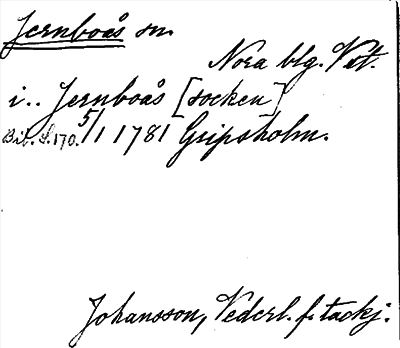 Jernboås sn.
Nora blg. Vst.
i.. Jernboås [socken]
Bib. S. 170. 5/1 1781 Gripsholm.
Johansson, Vederl. f. tackj.